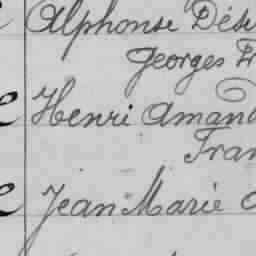 Alphonse Dési
Georges Fr
Henri Amand
Fran
Jean Marie